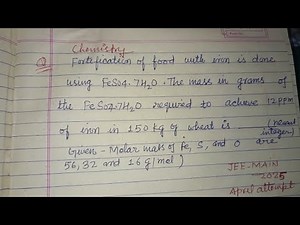 Chemistry
Q Fortification of food with iron is done
using FeSO4.7H2O. The mass in grams of
the FeSO4.7H2O required to achieve 12 PPM
of iron in 150 kg of wheat is (nearest
integer)
Given - Molar mass of Fe, S, and O are
56, 32 and 16 g/mol)
JEE-MAIN
2025
April attempt